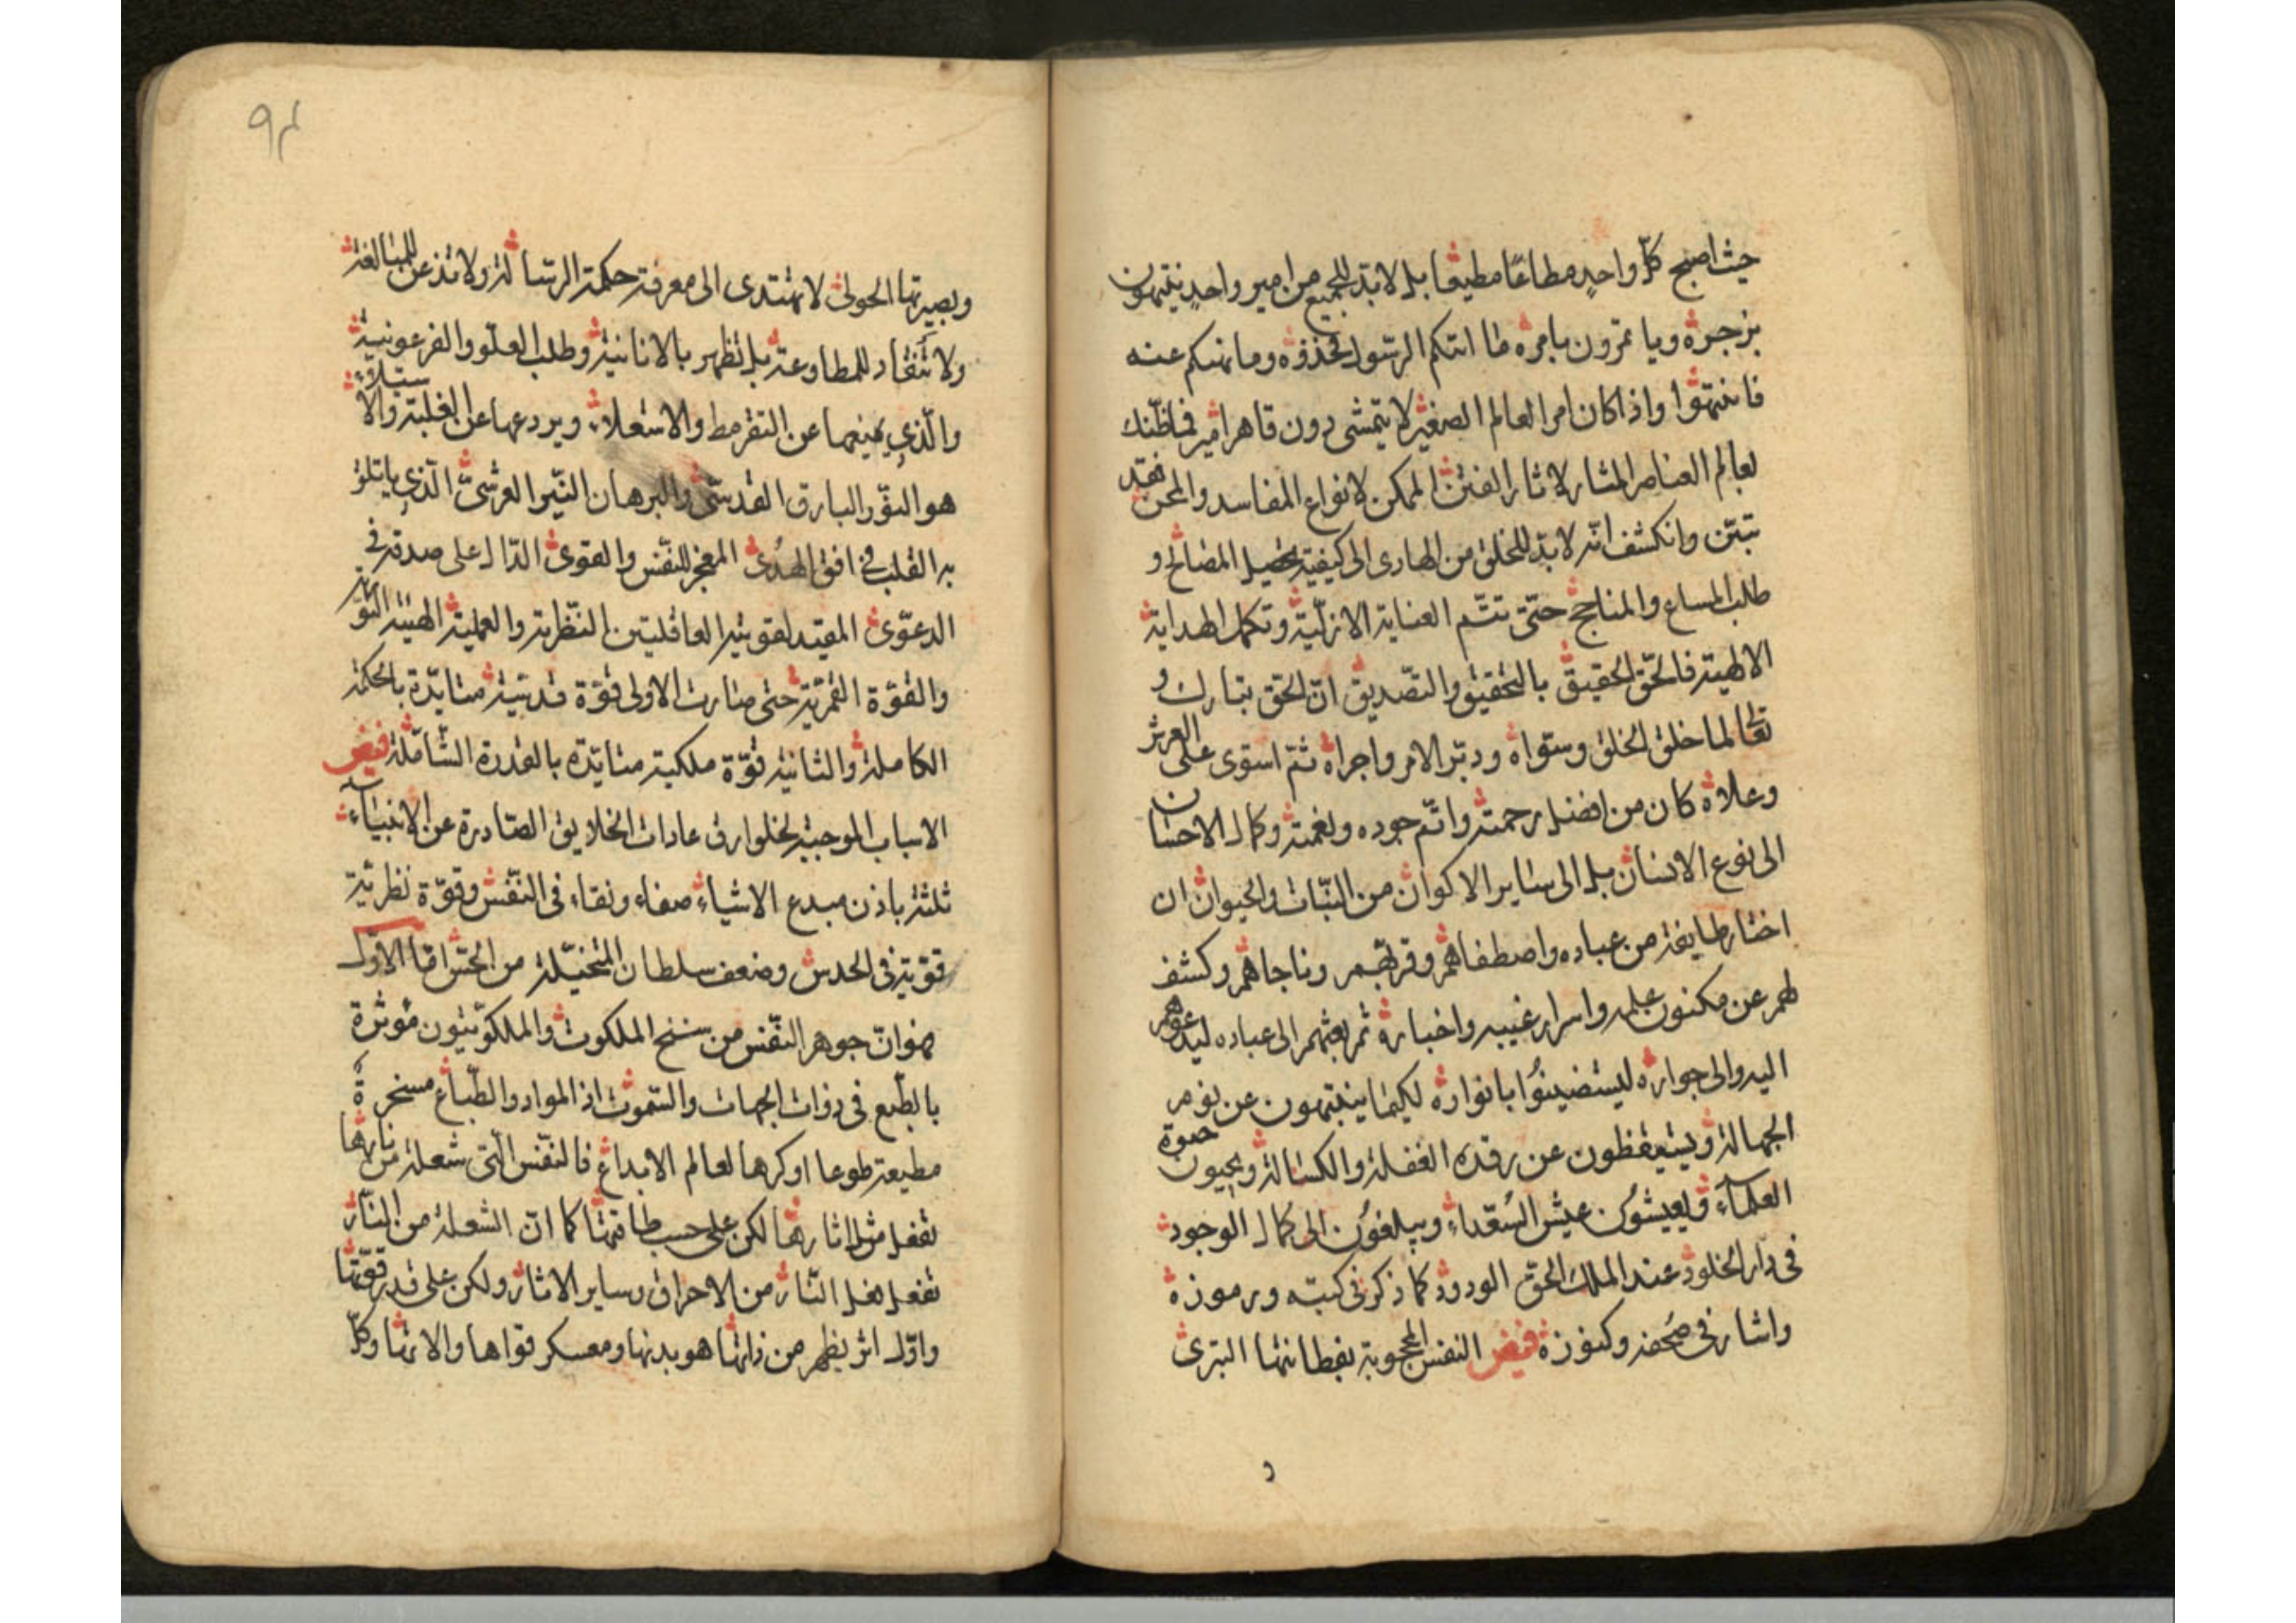 حيث اصبح كلّ واحدٍ مطاعًا مطيعا بل لا بدّ للجميع من امير واحدٍ ينتهون
بزجره ويا تمرون بامره ما اتتكم الرسول فخذوه وما نهيكم عنه
فانتهوا واذا كان امر العالم الصغير لا يتمشى دون قاهر امير فما ظنّك
لعالم العناصر المثار لاثار الفتن الممكن لانواع المفاسد والمحن فقد
تبيّن وانكشف انّه لا بدّ للخلق من الهادى الى كيفية تحصيل المصالح و
طلب المساعى والمناجح حتّى تتمّ العناية الازليّة وتكمل الهداية
الالهية فالحّق الحقيق بالتحقيق والتّصديق انّ الحق تبارك و
تعالى لما خلق الخلق وسّواه ودبّر الامر واجراه ثمّ استوى على العرش
وعلاه كان من افضل رحمته واتمّ جوده ونعمته وكمال الاحسان
الى نوع الانسان بل الى ساير الاكوان من النّبات والحيوان ان
اختار طايفة من عباده واصطفاهم وقربّهم وناجاهم وكشف
لهم عن مكنون علمه واسرار غيبه واخباره ثم بعثهم الى عباده ليدعوهم
اليه والى جواره ليستضيئوا بانواره لكيما ينتبهون عن نوم
الجهالة ويستيقظون عن رقدة الغفلة والكسالة ويحيون حيوة
العلماء ويعيشون عيش السّعداء ويبلغون الى كمال الوجود
فى دار الخلود عند الملك الحقّ الودود كما ذكر فى كتبه ورموزه
واشار فى صحفه وكنوزه فيض النفس المحجوبة بفطانتها البترى
٩٤
وبصيرتها الحولى لا تهتدى الى معرفة حكمة الرسالة ولا تذعن للمبالغة
ولا تنقاد للمطاوعة بل تظهر بالانانية وطلب العلّو والفرعونية
والّذى يمنعها عن التقرمط والاستعلاء ويردعها عن الغلبة والاستيلاء
هو النوّر البارق القدسّى والبرهان النّيّر العرشىّ الّذى ياتلق
به القلب فى افق الهُدى المعجز للنّفس والقوى الدّال على صدقه فى
الدعوى المفيد لقويته العاقليتين النّظرية والعملية الهيئة النّوريّة
والقوّة القمرّية حتى صارت الاولى قوّة قدسّية متايّدة بالحكمة
الكاملة والثانية قوّة ملكية متايّدة بالقدرة الشّاملة فيض
الاسباب الموجبة لخوارق عادات الخلايق الصّادرة عن الانبياء
ثلثة باذن مبدع الاشياء صفاء ونقاء فى النّفس وقوّة نظريّة
قوّية فى الحدس وضعف سلطان المتخيّلة من الحسّ امّا الاوّل
فهو انّ جوهر النّفس من سنخ الملكوت والملكوتيّون مؤثرة
بالطّبع فى ذوات الجهات والسّموت اذ المواد والطّباع مسخرة
مطيعة طوعا او كرها لعالم الابداع فالنّفس الّتى شعلة من نارها
تفعل مثل اثارها لكن على حسب طاقتها كما انّ الشعلة من النّار
تفعل فعل النّار من الاحراق وساير الاثار ولكن على قدر قوّتها
واوّل اثر يظهر من ذاتها هو بدنها ومعسكر قواها والاتها وكلّ